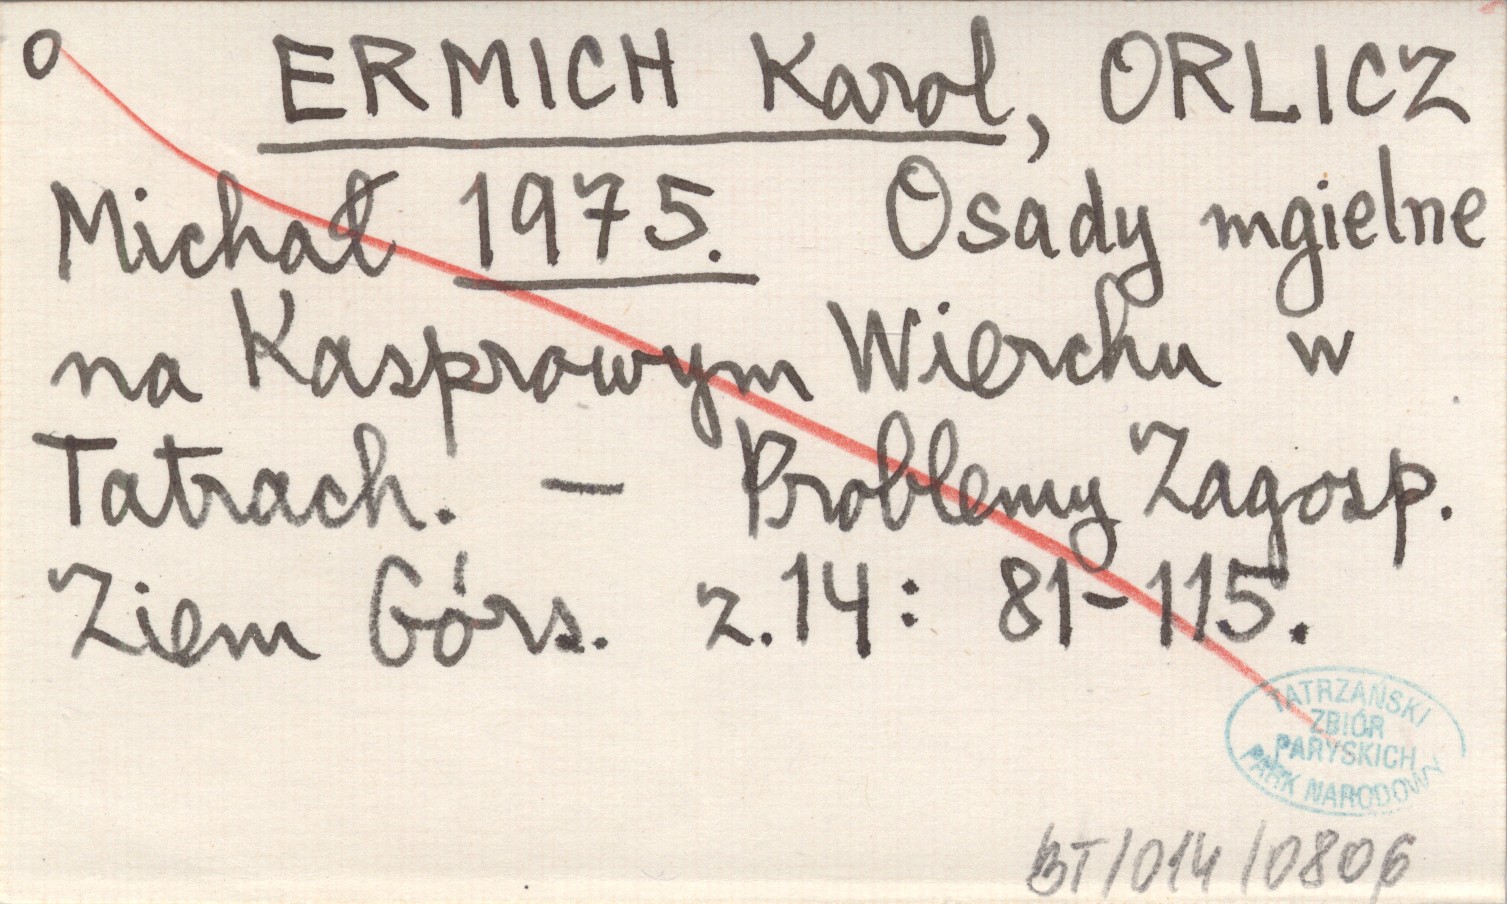 o ERMICH Karol, ORLICZ
Michał 1975. Osady mgielne
na Kasprowym Wierchu w
Tatrach. — Problemy Zagosp.
Ziem Górs. z.14: 81-115.
TATRZAŃSKI
ZBIÓR
PARYSKICH
PARK NARODOWY
BT/014/0806